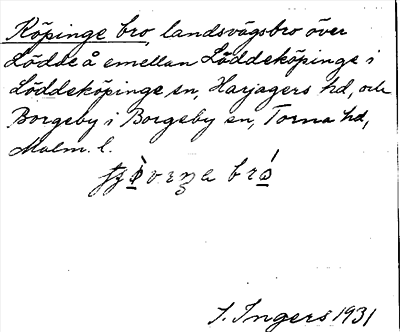 Köpinge bro, landsvägsbro över
Lödde å emellan Löddeköpinge i
Löddeköpinge sn, Harjagers hd, och
Borgeby i Borgeby sn, Torna hd,
Malm. l.
bro
I. Ingers 1931